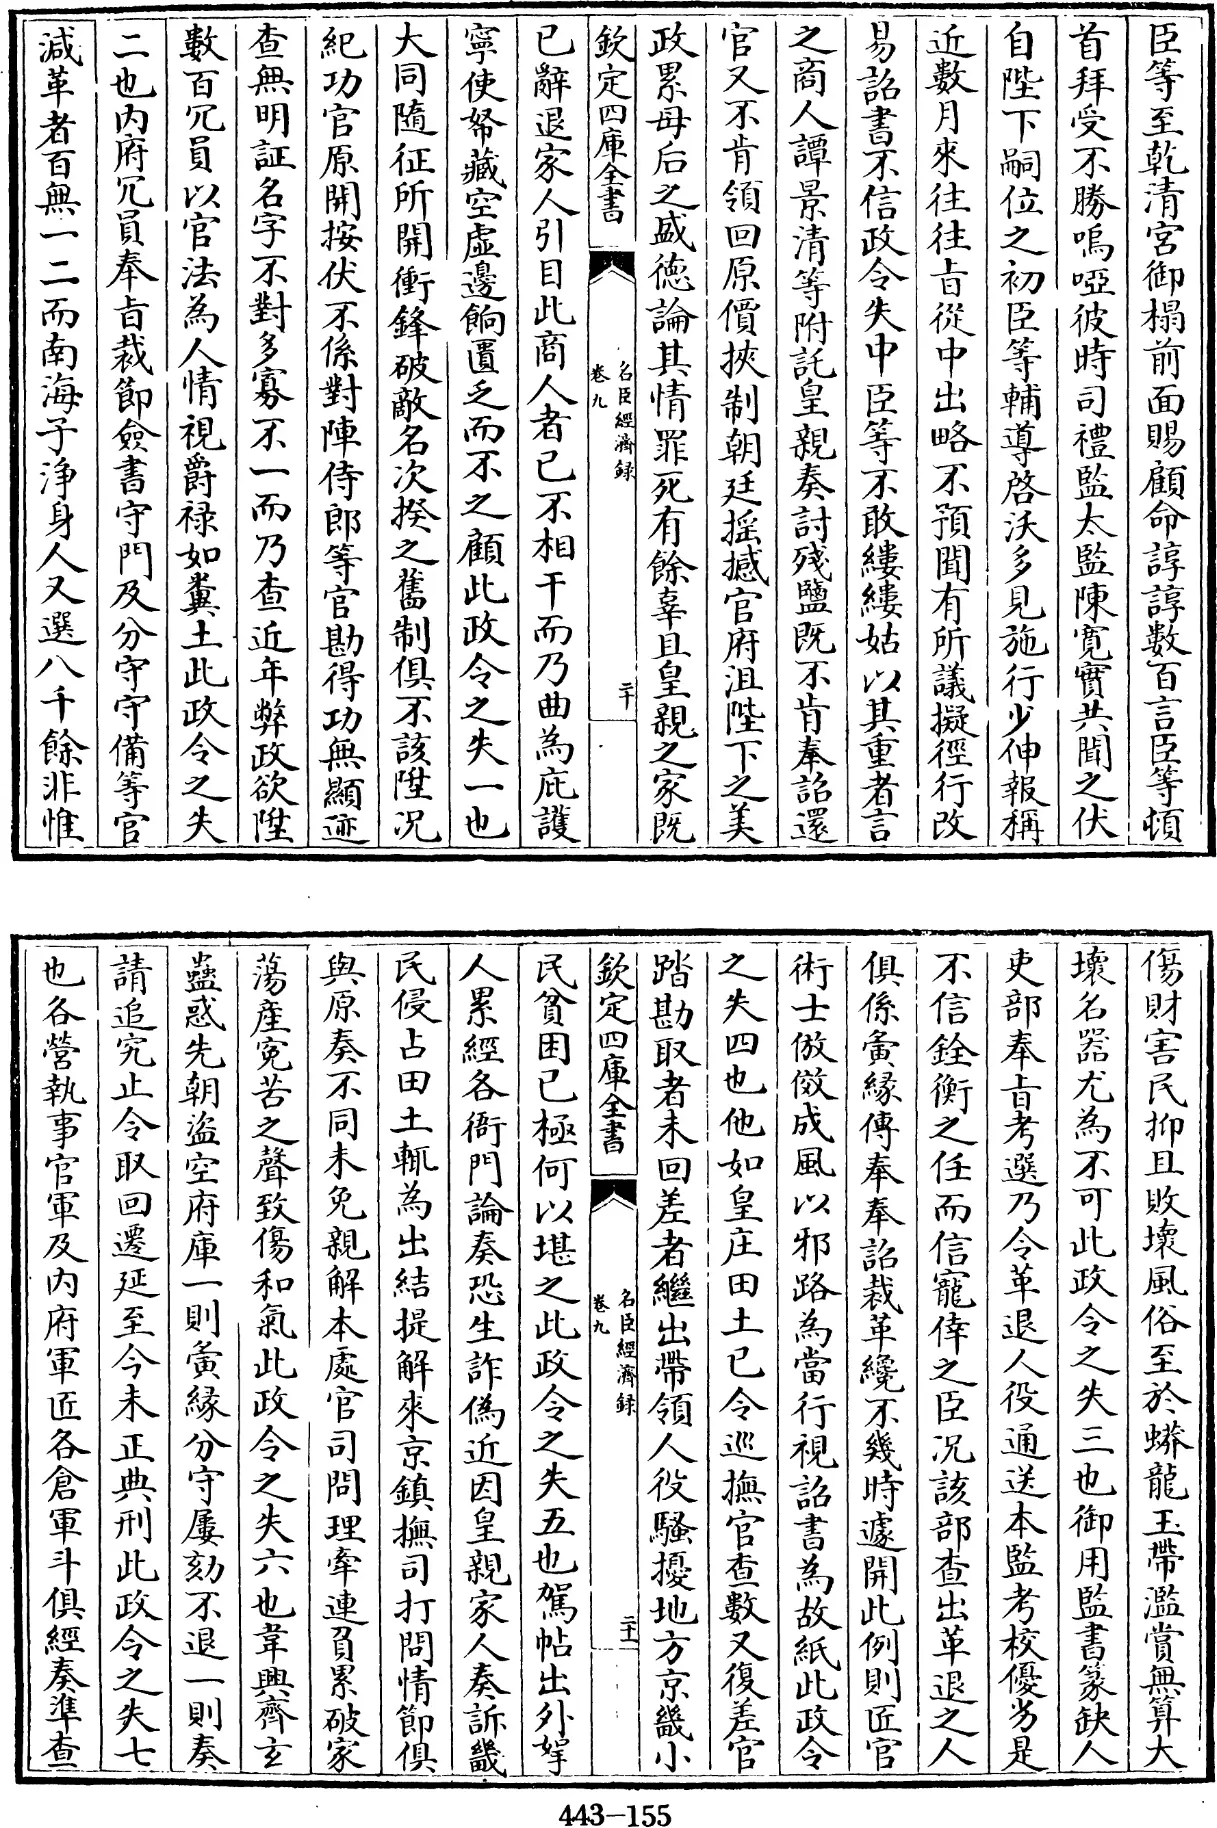 臣等至乾清宮御榻前面賜顧命諄諄數百言臣等頓
首拜受不勝嗚啞彼時司禮監太監陳寛實共聞之伏
自陛下嗣位之初臣等輔導啓沃多見施行少伸報稱
近數月來往往㫖從中出略不預聞有所議擬徑行改
易詔書不信政令失中臣等不敢縷縷姑以其重者言
之商人譚景清等附託皇親奏討殘鹽既不肯奉詔還
官又不肯領回原價挾制朝廷揺撼官府沮陛下之美
政累母后之盛徳論其情罪死有餘辜且皇親之家既
欽定四庫全書
名臣經濟録
卷九
二十
已辭退家人引目此商人者已不相干而乃曲為庇護
寧使帑藏空虚邊餉匱乏而不之顧此政令之失一也
大同隨征所開衝鋒破敵名次揆之舊制俱不該陞况
紀功官原開按伏不係對陣侍郎等官勘得功無顯迹
查無明証名字不對多寡不一而乃查近年弊政欲陞
數百冗員以官法為人情視爵禄如糞土此政令之失
二也内府冗員奉㫖裁節僉書守門及分守守備等官
減革者百無一二而南海子浄身人又選八千餘非惟
傷財害民抑且敗壞風俗至於蟒龍玉帶濫賞無算大
壞名器尤為不可此政令之失三也御用監書篆缺人
吏部奉㫖考選乃令革退人役通送本監考校優劣是
不信銓衡之任而信寵倖之臣况該部查出革退之人
俱係夤緣傳奉奉詔裁革纔不幾時遽開此例則匠官
術士倣傚成風以邪路為當行視詔書為故紙此政令
之失四也他如皇庄田土已令巡撫官查數又復差官
踏勘取者未回差者繼出帶領人役騷擾地方京畿小
欽定四庫全書
名臣經濟録
卷九
二十一
民貧困已極何以堪之此政令之失五也駕帖出外拏
人累經各衙門論奏恐生詐偽近因皇親家人奏訴畿
民侵占田土輒為出結提解來京鎮撫司打問情節俱
與原奏不同未免親解本處官司問理牽連負累破家
蕩産寃苦之聲致傷和氣此政令之失六也韋興齊玄
蠱惑先朝盜空府庫一則夤縁分守屢劾不退一則奏
請追究止令取回遷延至今未正典刑此政令之失七
也各營執事官軍及内府軍匠各倉軍斗俱經奏準查
443-155